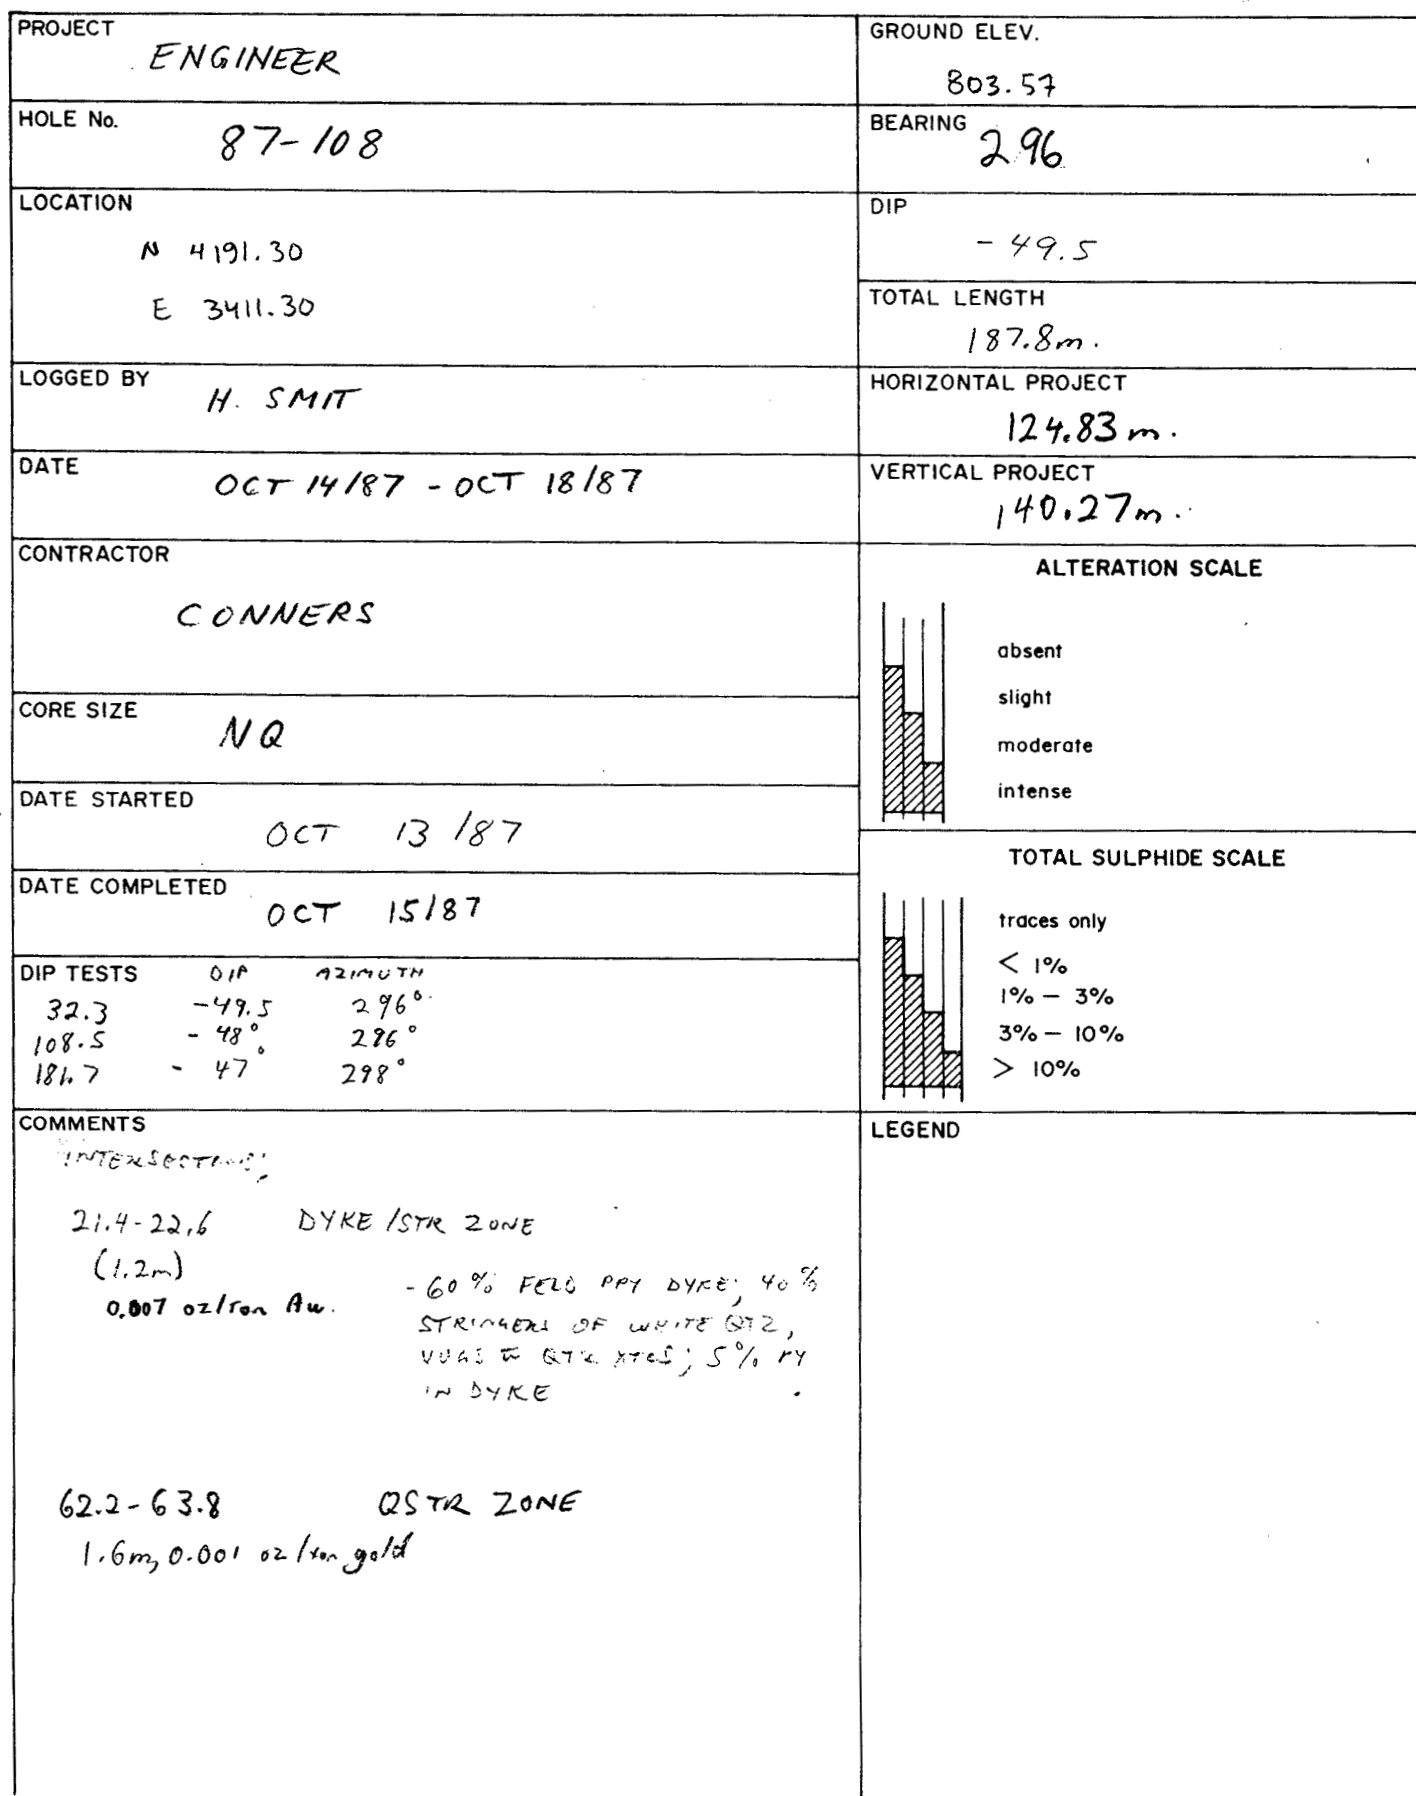 PROJECT
ENGINEER
HOLE No.
87-108
LOCATION
N 4191.30
E 3411.30
LOGGED BY
H. SMIT
DATE
OCT 14/87 - OCT 18/87
CONTRACTOR
CONNERS
CORE SIZE
NQ
DATE STARTED
OCT 13/87
DATE COMPLETED
OCT 15/87
DIP TESTS DIP AZIMUTH
32.3 -49.5 296°
108.5 -48° 296°
181.7 -47° 298°
COMMENTS
INTERSECTIONS;
21.4-22.6 DYKE/STR ZONE
(1.2m)
0.007 oz/ton Au.
-60% FELD PPY DYKE; 40%
STRINGERS OF WHITE QTZ,
VUGS QTZ XTLS; 5% PY
IN DYKE
62.2-63.8 QSTR ZONE
1.6m, 0.001 oz/ton gold
GROUND ELEV.
803.57
BEARING
296
DIP
-49.5
TOTAL LENGTH
187.8m.
HORIZONTAL PROJECT
124.83m.
VERTICAL PROJECT
140.27m.
ALTERATION SCALE
absent
slight
moderate
intense
TOTAL SULPHIDE SCALE
traces only
< 1%
1% - 3%
3% - 10%
> 10%
LEGEND